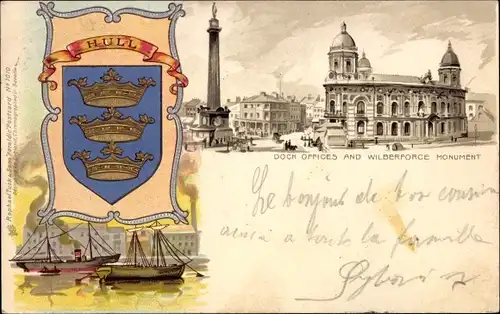 HULL
Raphael Tuck & Sons "Heraldic Postcard" No. 1010
DOCK OFFICES AND WILBERFORCE MONUMENT
Le bonjour de ton cousin
ainsi à toute la famille